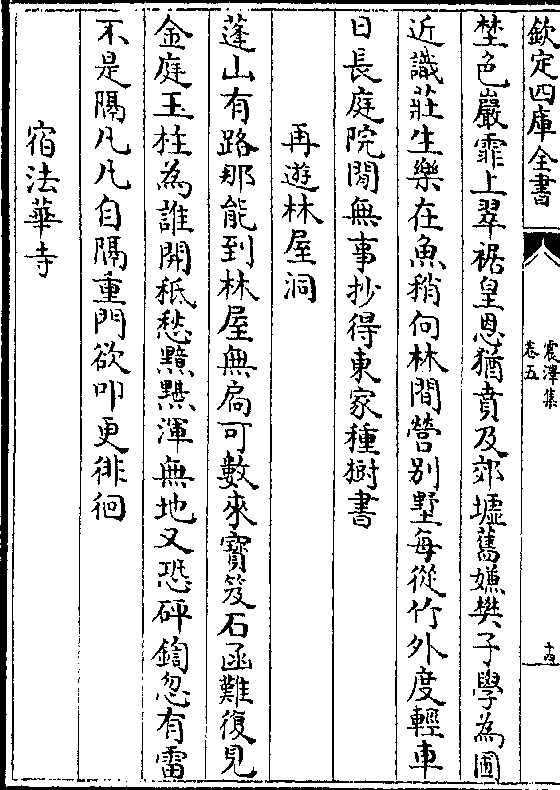 欽定四庫全書
震澤集
卷五
十四
埜色巖霏上翠裾皇恩猶賁及郊墟舊嫌樊子學為圃
近識莊生樂在魚稍向林間營别墅每從竹外度輕車
日長庭院閒無事抄得東家種樹書
再遊林屋洞
蓬山有路那能到林屋無扃可數來寳笈石函難復見
金庭玉柱為誰開秖愁黯黮渾無地又恐砰鍧忽有雷
不是隔凡凡自隔重門欲叩更徘徊
宿法華寺